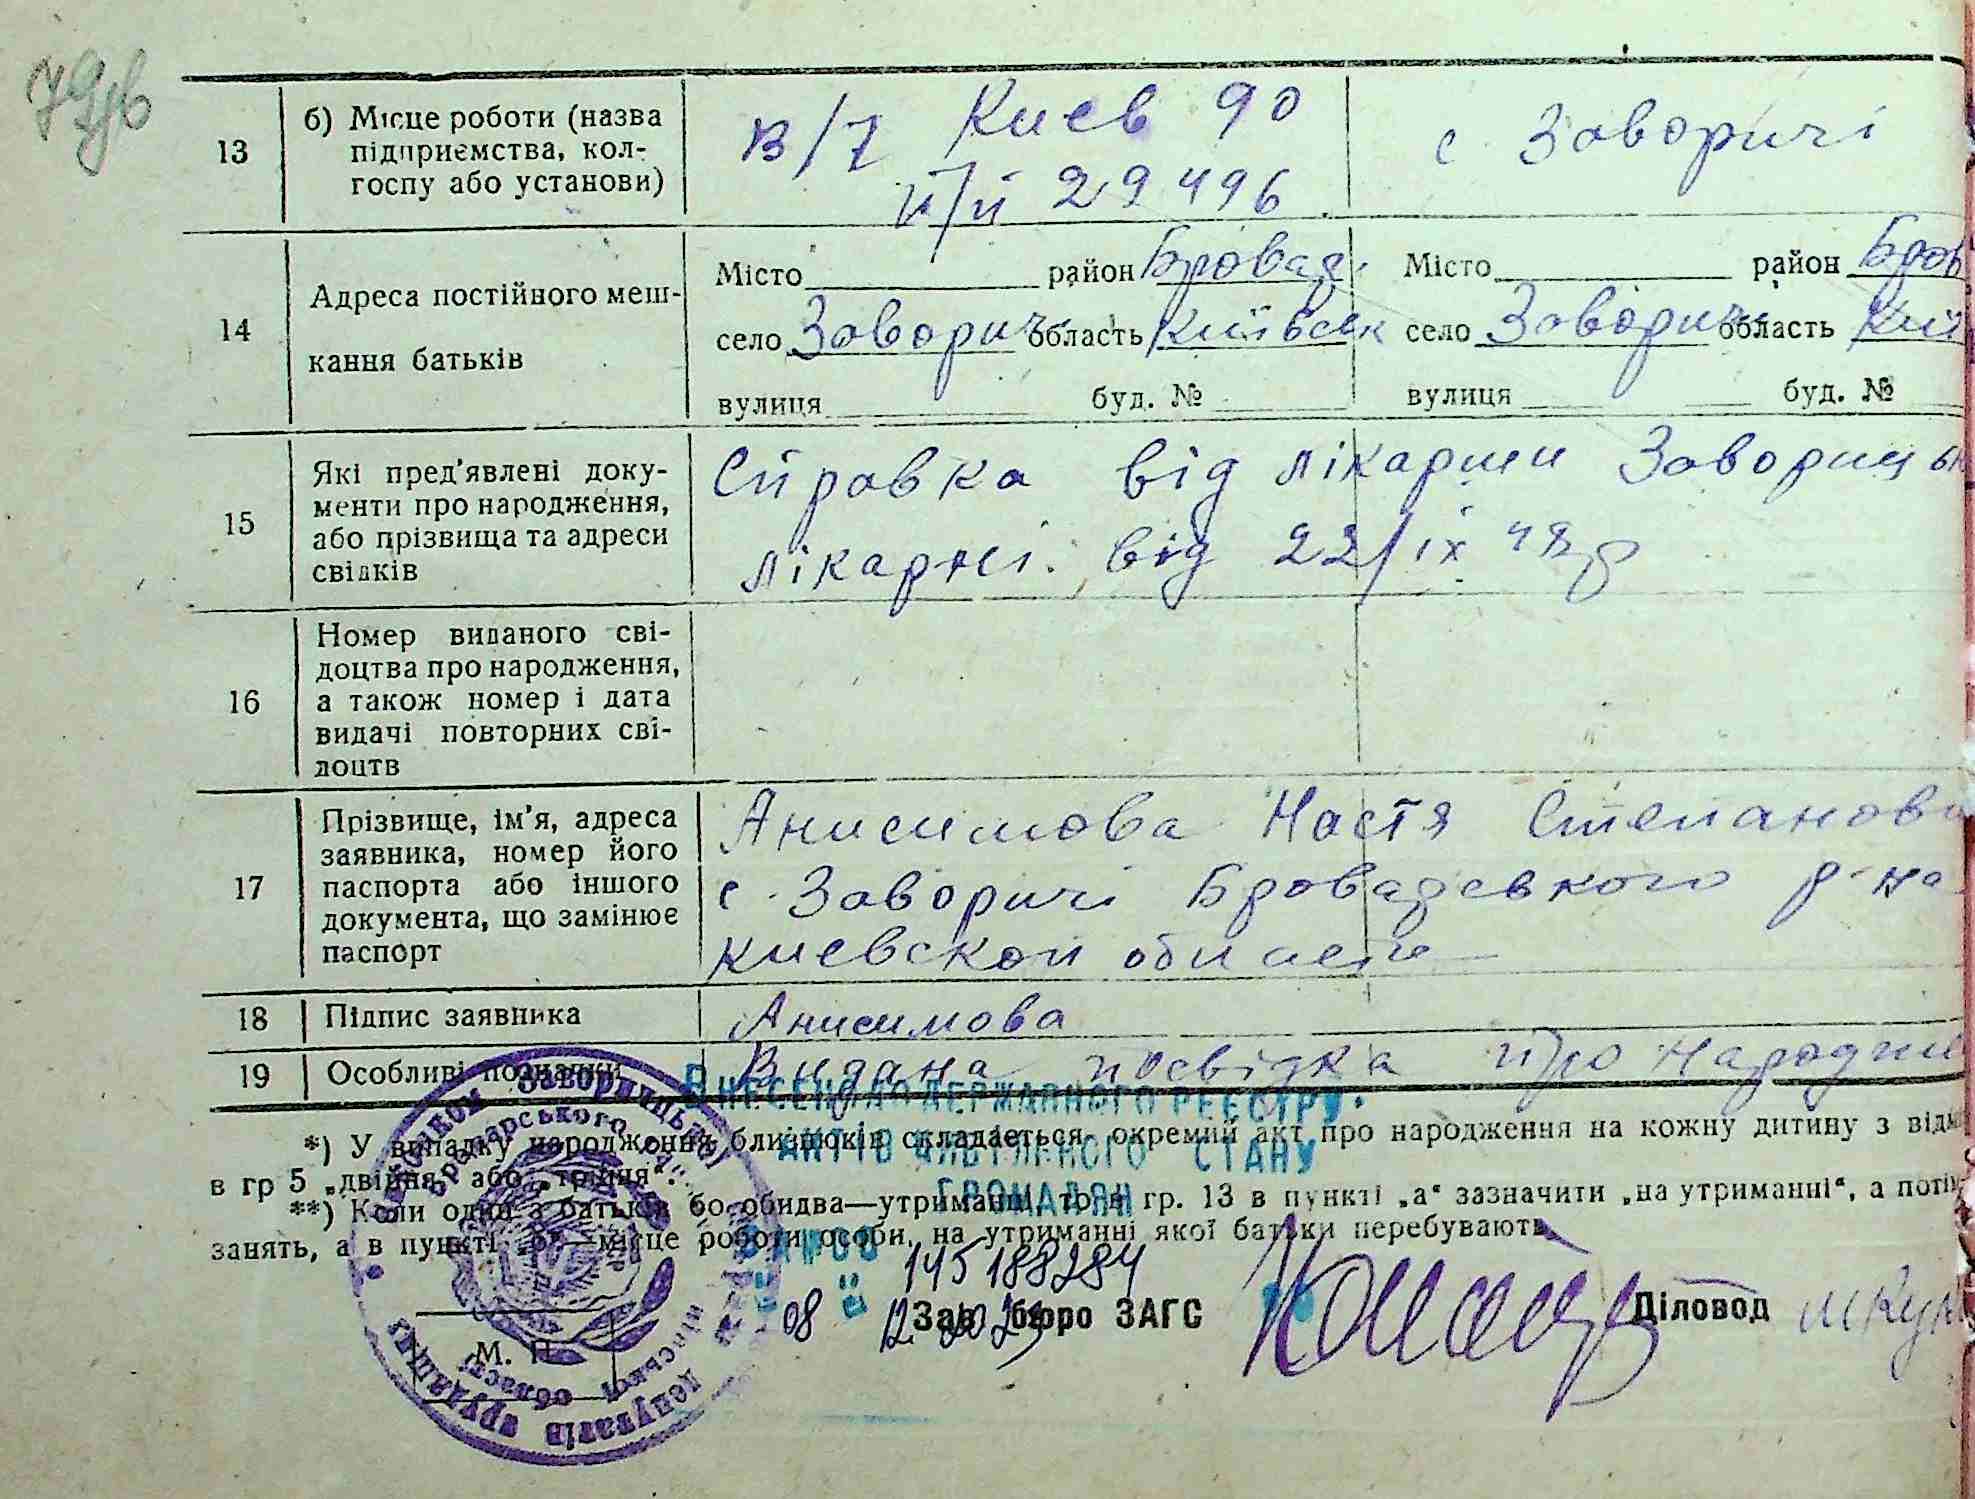 79зв
13
б) Місце роботи (назва
підприємства, кол-
госпу або установи)
в/ч Киев 90
п/п 29496
с. Заворичі
14
Адреса постійного меш-
кання батьків
Місто район Бровар.
село Заворичі область Київськ
вулиця буд. №
Місто район Бров
село Заворичі область Киї
вулиця буд. №
15
Які пред’явлені доку-
менти про народження,
або прізвища та адреси
свідків
Справка від лікарши Завориць
лікарні. від 22/ІХ 48 р
16
Номер виданого сві-
доцтва про народження,
а також номер і дата
видачі повторних сві-
доцтв
17
Прізвище, ім’я, адреса
заявника, номер його
паспорта або іншого
документа, що замінює
паспорт
Анисимова Настя Степанов
с. Заворичі Броварсвкого р-на
Киевской области
18
Підпис заявника
Анисимова
19
Особливі позначки
Видана посвідка про народжен
ВНЕСЕНО ДО ДЕРЖАВНОГО РЕЄСТРУ
АКТІВ ЦИВІЛЬНОГО СТАНУ
ГРОМАДЯН
ЗА № 00
145188284
08 12 2023
*) У випадку народження близнюків складається окремий акт про народження на кожну дитину з від
в гр 5 „двійня“ або „трійня“.
**) Коли один з батьків або обидва—утриманці, то в гр. 13 в пункті „а“ зазначити „на утриманні“, а потім
занять, а в пункті „б“—місце роботи особи, на утриманні якої батьки перебувають
Зав. бюро ЗАГС
Діловод
М. П.
Виконком Заворицької депутатів трудящих
Броварського Київської області